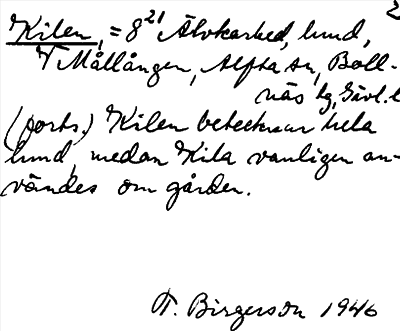 2
Kilen, = 8²¹ Älvkarhed, hmd,
V Mållången, Alfta sn, Boll-
näs tg, Gävl. l
(forts.) Kilen betecknar hela
hmd, medan Kila vanligen an-
vändes om gården.
T. Birgerson 1946